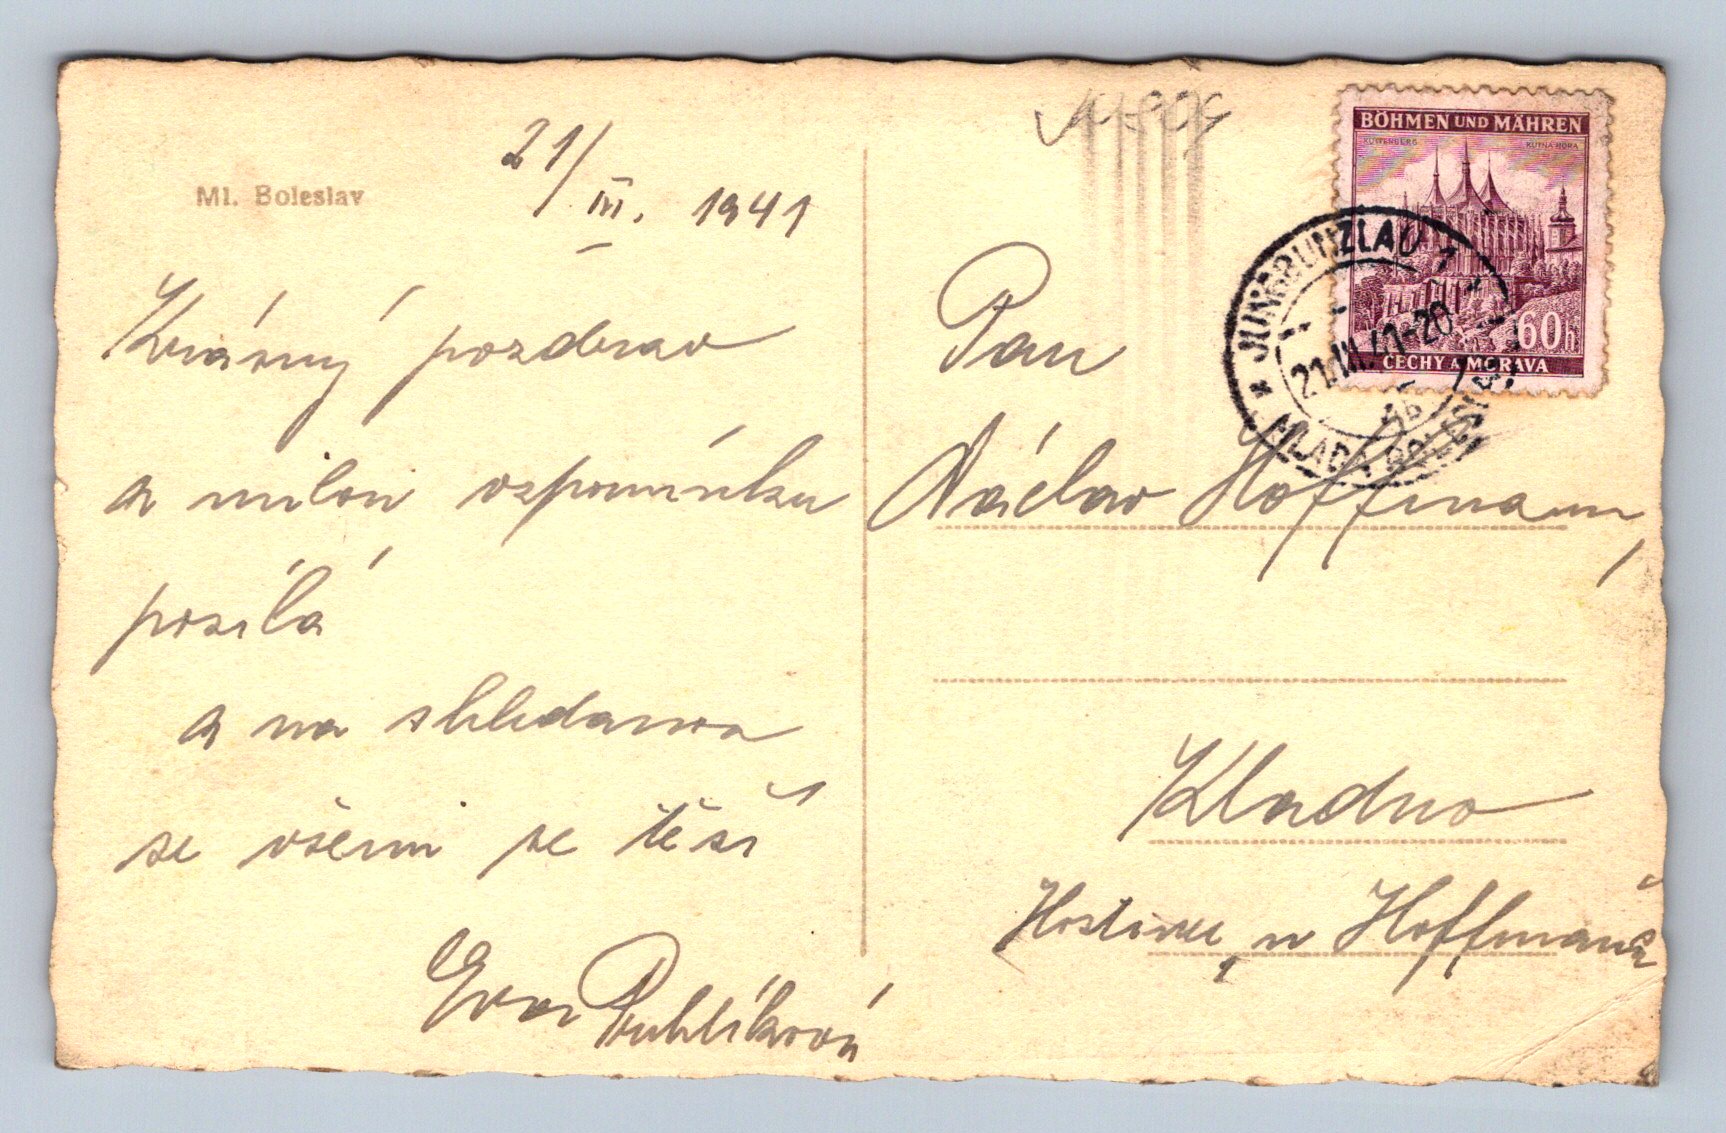 Ml. Boleslav
21/III. 1941
Krásný pozdrav
a milou vzpomínku
posílá
a na shledanou
se všemi se těší
Eva
Pan
Václav Hoffmann,
Kladno
Hostinec „u Hoffmanů
BÖHMEN UND MÄHREN
KUTTENBERG KUTNÁ HORA
60h
ČECHY A MORAVA
* JUNGBUNZLAU 1
21.III.41-20
MLADÁ BOLESLAV